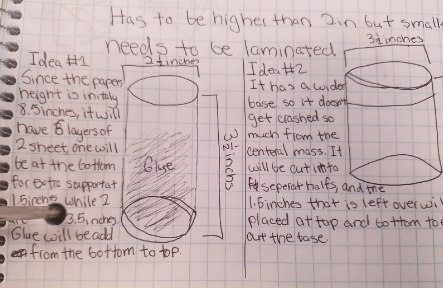 Has to be higher than 2in but small
needs to be laminated
2½inches
3½inches
Idea #1
Since the papers
height is initily
8.5inches, it will
have 6 layers of
2 sheet, one will
be at the bottom
for extra support at
1.5inches while 2
3.5inches
Glue will be add
from the bottom to top.
Glue
3½inches
Idea #2
It has a wider
base so it doesnt
get crashed so
much from the
centeral mass. It
will be cut into
seperat halfs, and the
1.5inches that is left over wi
placed at top and bottom to
out the base.